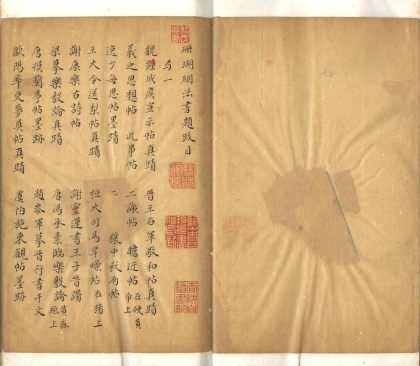 珊瑚網法書題跋目
弓一
魏鍾成侯宣示帖真蹟 晉王右軍敬和帖真蹟
羲之思想帖 此事帖 二謝帖 瞻近帖
逸少每思帖墨蹟 中秋雨帖
王大令送梨帖真蹟 桓大司馬旱燥帖
謝康樂古詩帖 謝靈運書王子晉讚
梁摹樂毅論真蹟 唐馮承素臨樂毅論
唐摸蘭亭帖墨跡 趙參軍摹晉行書千文
歐陽率更夢奠帖真蹟 虞伯施東觀帖墨跡